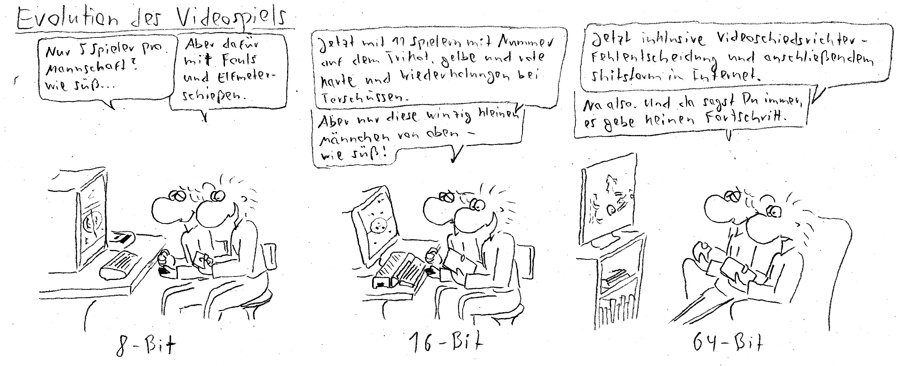 Evolution des Videospiels
Nur 5 Spieler pro
Mannschaft?
Wie süß...
Aber dafür
mit Fouls
und Elfmeter-
schießen.
Jetzt mit 11 Spielern mit Nummer
auf dem Trikot, gelbe und rote
Karte und Wiederholungen bei
Torschüssen.
Aber nur diese winzig kleinen
Männchen von oben -
wie süß!
Jetzt inklusive Videoschiedsrichter-
Fehlentscheidung und anschließendem
Shitstorm in Internet.
Na also. Und da sagst Du immer,
es gebe keinen Fortschritt.
8-Bit
16-Bit
64-Bit